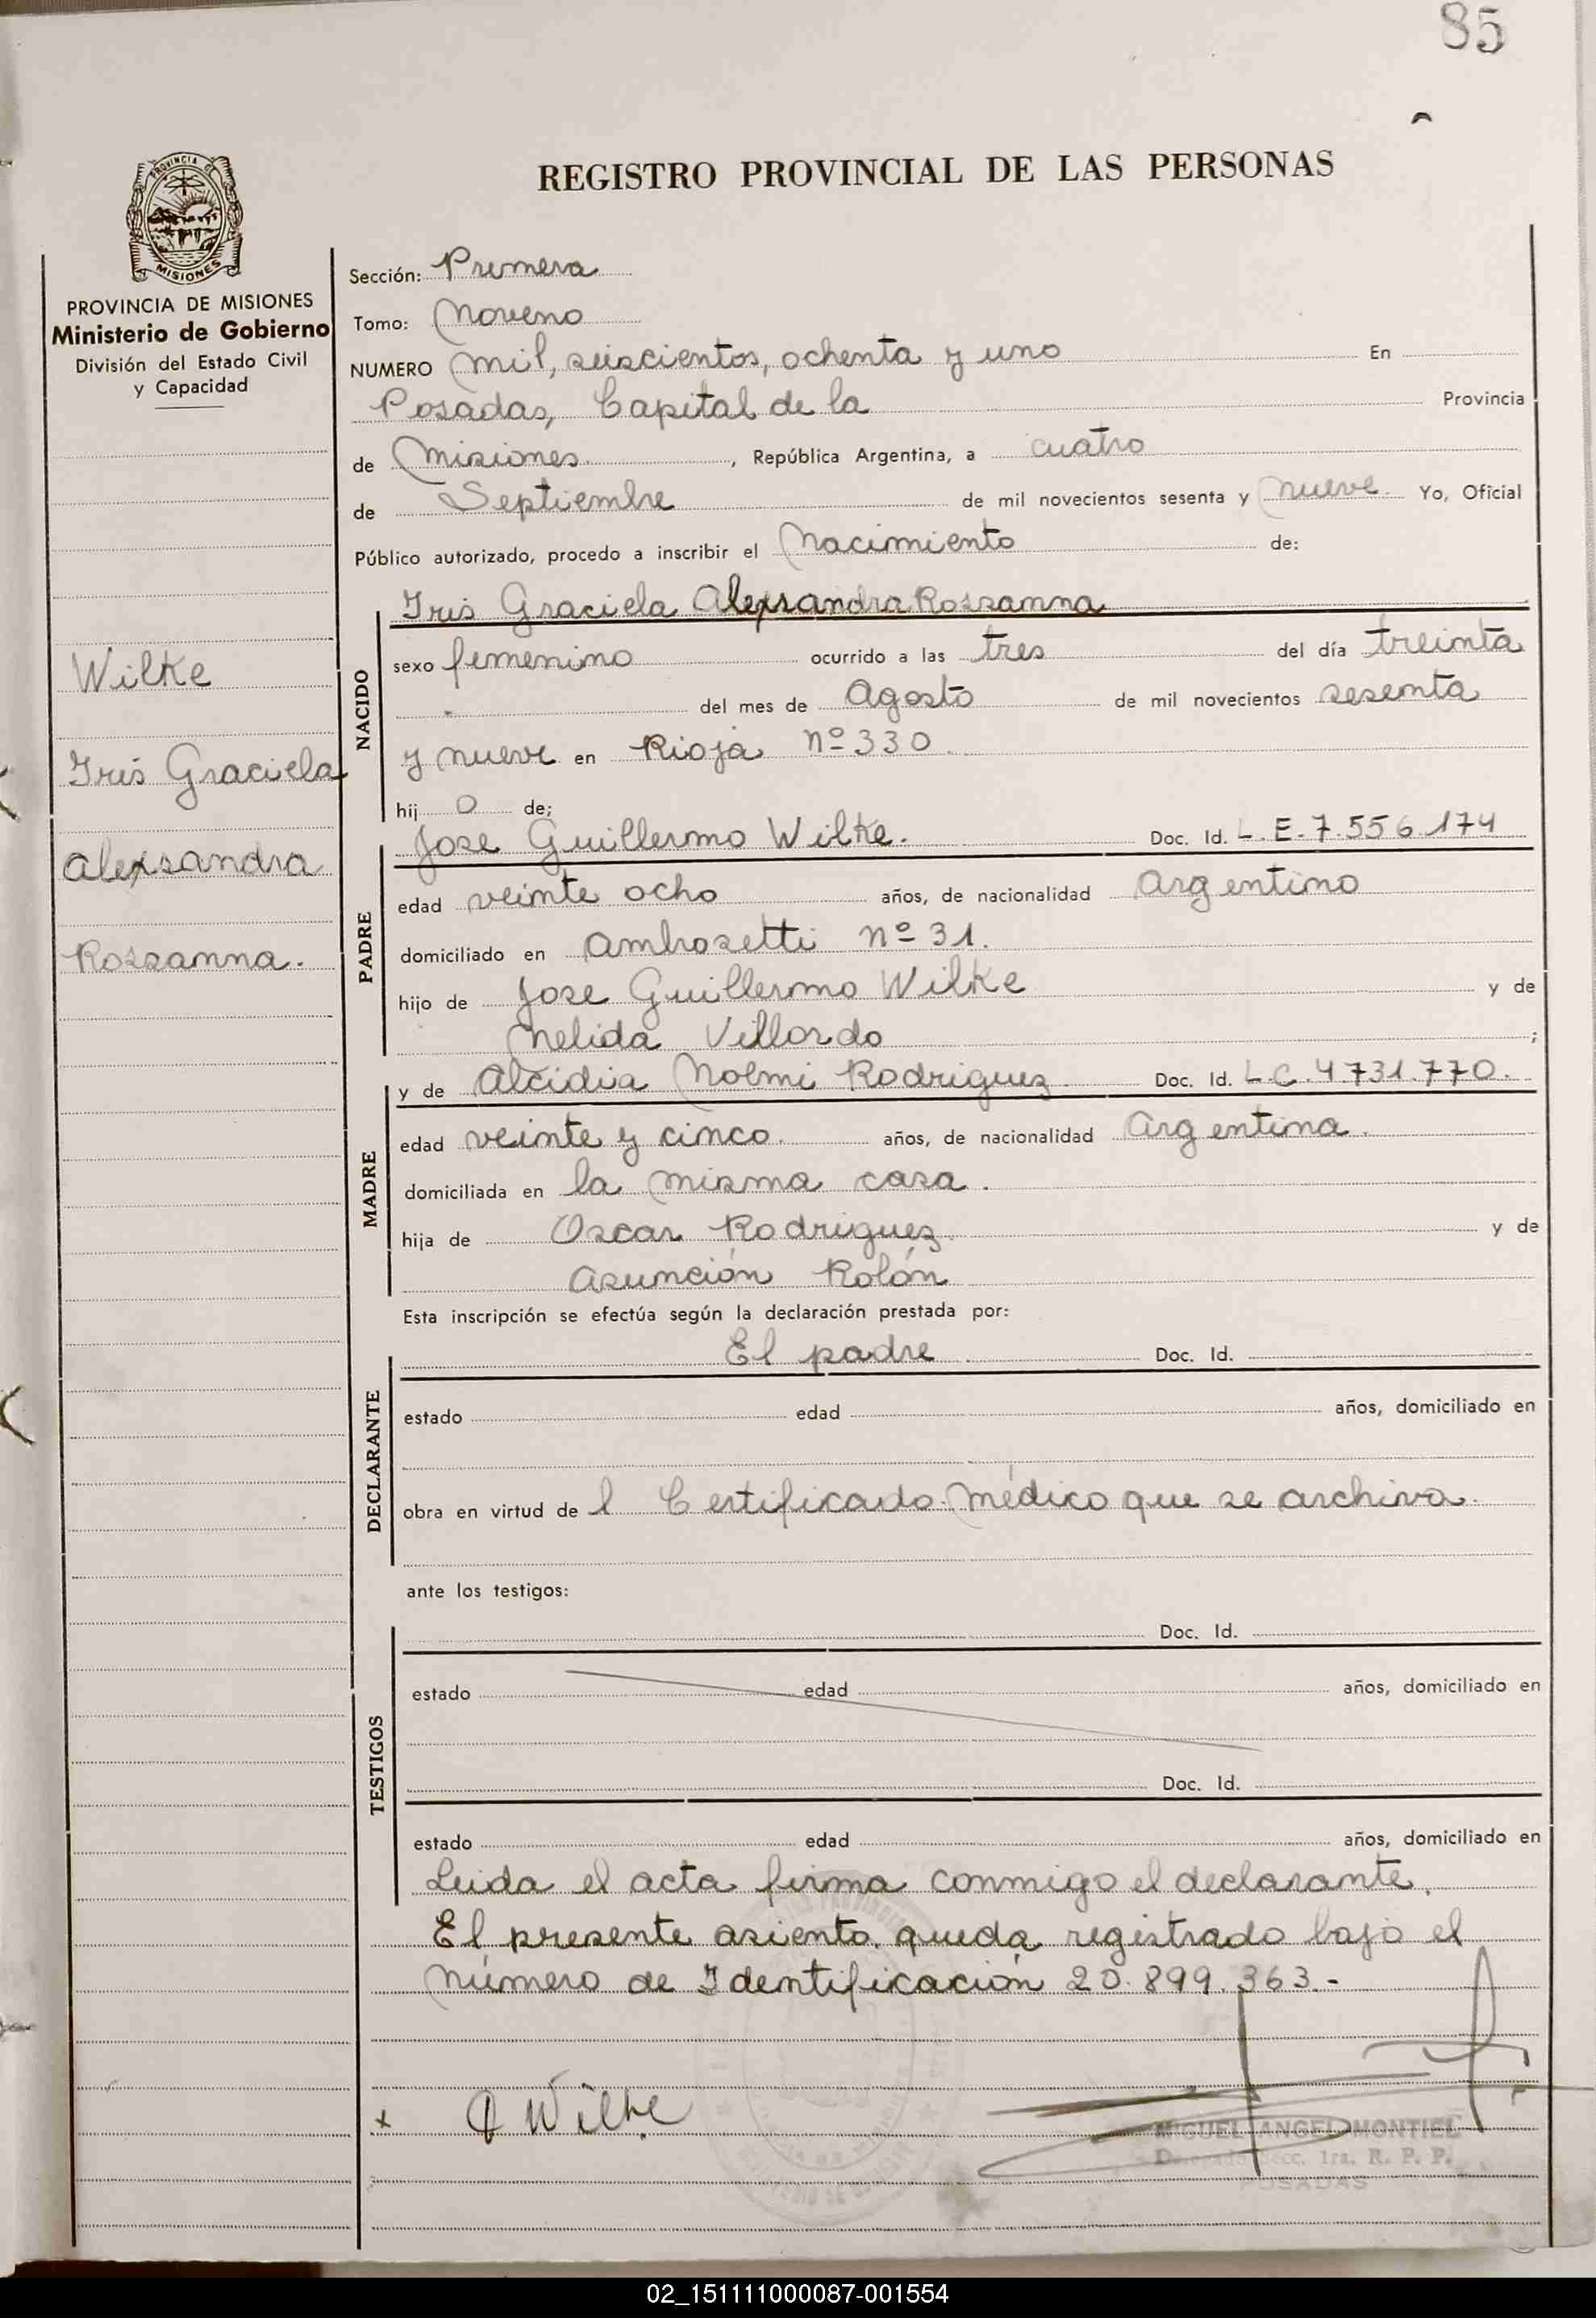 85
REGISTRO PROVINCIAL DE LAS PERSONAS
PROVINCIA DE
MISIONES
PROVINCIA DE MISIONES
Ministerio de Gobierno
División del Estado Civil
y Capacidad
Wilke
Iris Graciela
Alexsandra
Rossanna.
Sección: Primera
Tomo: Noveno
NUMERO Mil, seiscientos, ochenta y uno En
Posadas, Capital de la Provincia
de Misiones , República Argentina, a cuatro
de Septiembre de mil novecientos sesenta y nueve. Yo, Oficial
Público autorizado, procedo a inscribir el Nacimiento de:
Iris Graciela Alexsandra Rossanna
NACIDO
sexo femenino ocurrido a las tres del día treinta
del mes de Agosto de mil novecientos sesenta
y nueve en Rioja nº 330.
hij o de;
Jose Guillermo Wilke. Doc. Id. L.E. 7.556.174
PADRE
edad veinte ocho años, de nacionalidad Argentino
domiciliado en Ambrosetti nº 31.
hijo de Jose Guillermo Wilke y de
Nelida Villordo ;
y de Alcidia Noemi Rodriguez Doc. Id. L.C. 4731.770.
MADRE
edad veinte y cinco. años, de nacionalidad Argentina.
domiciliada en la misma casa.
hija de Oscar Rodriguez. y de
Asunción Rolón
Esta inscripción se efectúa según la declaración prestada por:
El padre. Doc. Id.
DECLARANTE
estado edad años, domiciliado en
obra en virtud de l Certificado Médico que se archiva.
ante los testigos:
Doc. Id.
TESTIGOS
estado edad años, domiciliado en
Doc. Id.
estado edad años, domiciliado en
Leida el acta firma conmigo el declarante.
El presente asiento queda registrado bajo el
Número de Identificación 20.899.363.-
x Wilke
MIGUEL ANGEL MONTIEL
Secc. 1ra. R. P. P.
POSADAS
02_151111000087-001554